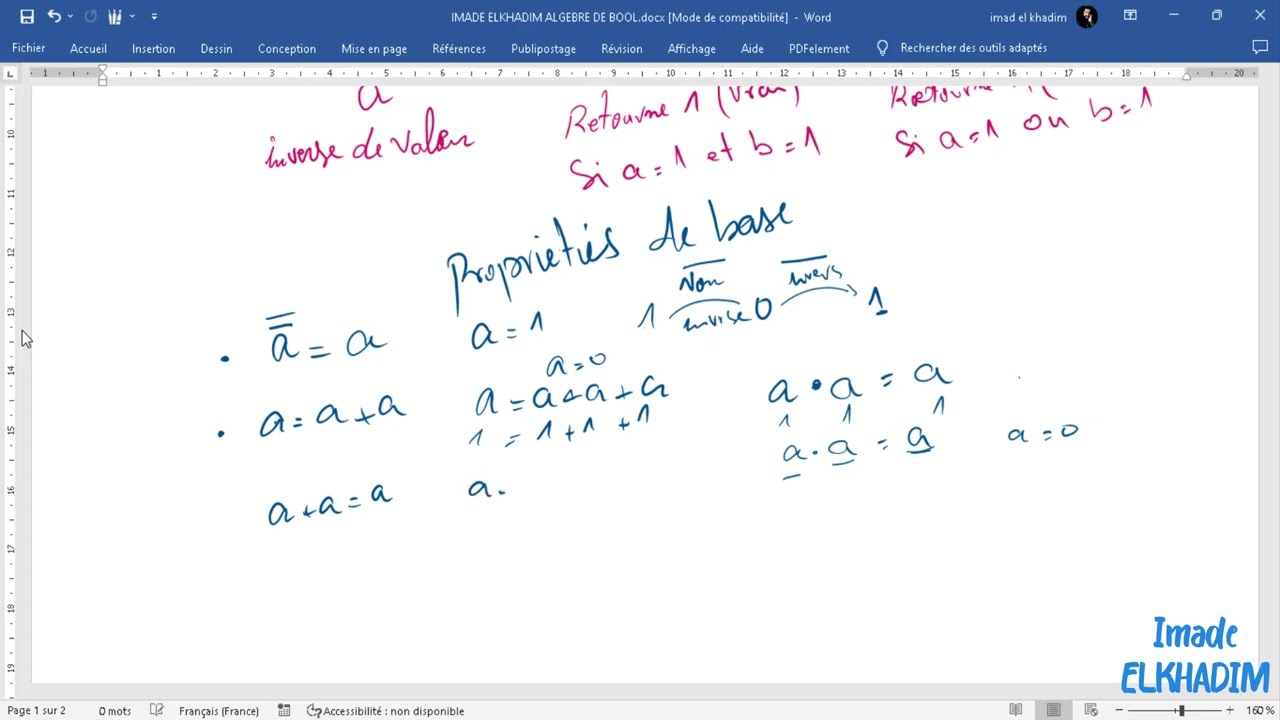 IMADE ELKHADIM ALGEBRE DE BOOL.docx [Mode de compatibilité] - Word
imad el khadim
Fichier Accueil Insertion Dessin Conception Mise en page Références Publipostage Révision Affichage Aide PDFelement Rechercher des outils adaptés
1 1 2 3 4 5 6 7 8 9 10 11 12 13 14 15 16 17 18 20
a
inverse de valeur
Retourne 1 (Vrai)
Si a=1 et b=1
Retourne 1(
Si a=1 ou b=1
Proprietiés de base
Non invers
1 inverse 0 1
a̿ = a a = 1
a=0
a = a+a a = a+a+a a • a = a
1 = 1+1+1 1 1 1
a . a = a a=0
a+a=a a.
Imade
ELKHADIM
10
11
12
13
14
15
16
17
18
19
Page 1 sur 2 0 mots Français (France) Accessibilité : non disponible 160 %